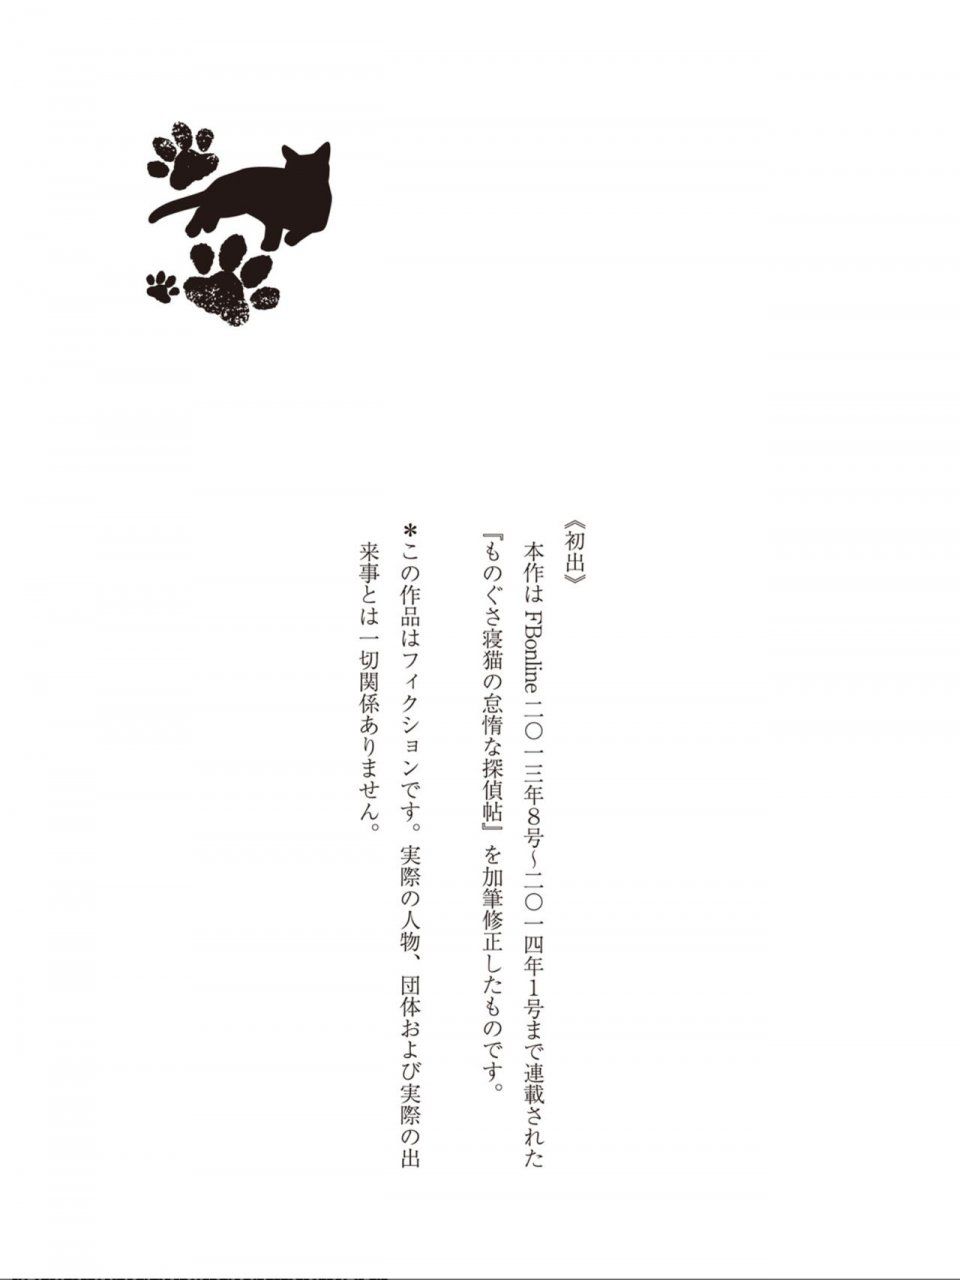 《初出》
本作は FBonline 二〇一三年8号〜二〇一四年1号まで連載された
『ものぐさ寝猫の怠惰な探偵帖』を加筆修正したものです。
＊この作品はフィクションです。実際の人物、団体および実際の出
来事とは一切関係ありません。